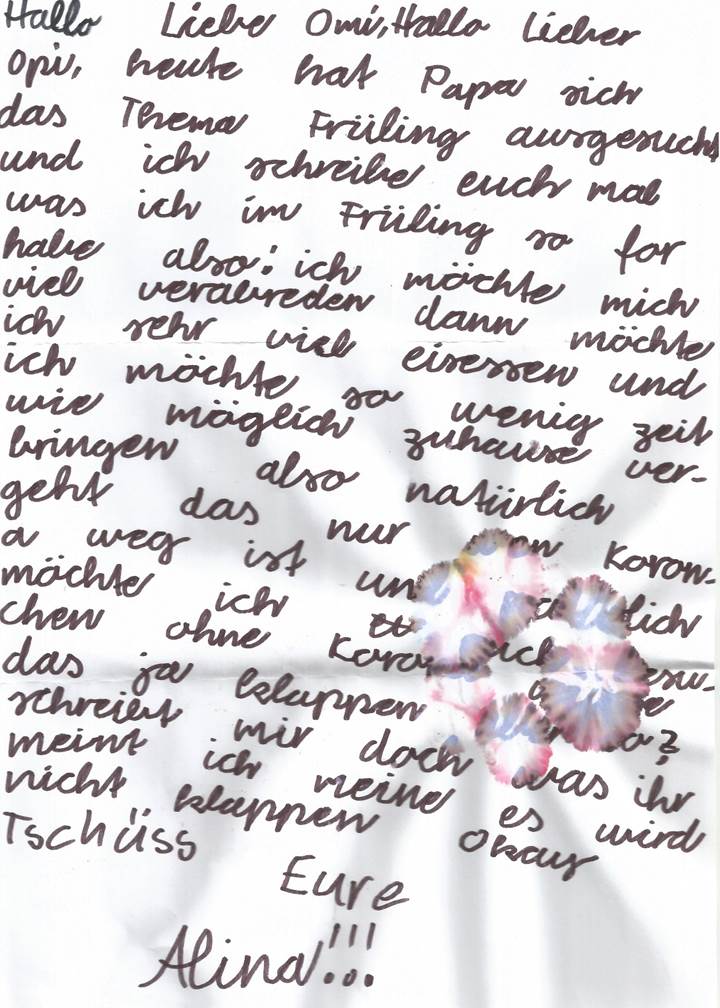 Hallo Liebe Omi, Hallo Lieber
Opi, heute hat Papa sich
das Thema Früling ausgesucht
und ich schreibe euch mal
was ich im Früling so for
habe also: ich möchte mich
viel verabreden dann möchte
ich sehr viel eisessen und
ich möchte so wenig zeit
wie möglich zuhause ver-
bringen also natürlich
geht das nur Koron-
a weg ist un lich
möchte ich esu-
chen ohne Koro
das ja klappen
schreibt mir doch was ihr
meint ich meine es wird
nicht klappen Okay
Tschüss
Eure
Alina!!!